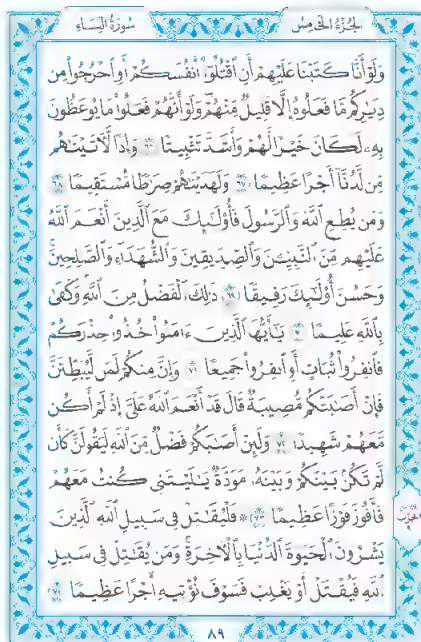 سُورَةُ النِّسَاءِ الجُزْءُ الخَامِسُ
وَلَوْ أَنَّا كَتَبْنَا عَلَيْهِمْ أَنِ ٱقْتُلُوٓا۟ أَنفُسَكُمْ أَوِ ٱخْرُجُوا۟ مِن
دِيَـٰرِكُم مَّا فَعَلُوهُ إِلَّا قَلِيلٌ مِّنْهُمْ وَلَوْ أَنَّهُمْ فَعَلُوا۟ مَا يُوعَظُونَ
بِهِۦ لَكَانَ خَيْرًا لَّهُمْ وَأَشَدَّ تَثْبِيتًا ٦٦ وَإِذًا لَّـَٔاتَيْنَـٰهُم
مِّن لَّدُنَّآ أَجْرًا عَظِيمًا ٦٧ وَلَهَدَيْنَـٰهُمْ صِرَٰطًا مُّسْتَقِيمًا ٦٨
وَمَن يُطِعِ ٱللَّهَ وَٱلرَّسُولَ فَأُو۟لَـٰٓئِكَ مَعَ ٱلَّذِينَ أَنْعَمَ ٱللَّهُ
عَلَيْهِم مِّنَ ٱلنَّبِيِّـۧنَ وَٱلصِّدِّيقِينَ وَٱلشُّهَدَآءِ وَٱلصَّـٰلِحِينَ ۚ
وَحَسُنَ أُو۟لَـٰٓئِكَ رَفِيقًا ٦٩ ذَٰلِكَ ٱلْفَضْلُ مِنَ ٱللَّهِ ۚ وَكَفَىٰ
بِٱللَّهِ عَلِيمًا ٧٠ يَـٰٓأَيُّهَا ٱلَّذِينَ ءَامَنُوا۟ خُذُوا۟ حِذْرَكُمْ
فَٱنفِرُوا۟ ثُبَاتٍ أَوِ ٱنفِرُوا۟ جَمِيعًا ٧١ وَإِنَّ مِنكُمْ لَمَن لَّيُبَطِّئَنَّ
فَإِنْ أَصَـٰبَتْكُم مُّصِيبَةٌ قَالَ قَدْ أَنْعَمَ ٱللَّهُ عَلَىَّ إِذْ لَمْ أَكُن
مَّعَهُمْ شَهِيدًا ٧٢ وَلَئِنْ أَصَـٰبَكُمْ فَضْلٌ مِّنَ ٱللَّهِ لَيَقُولَنَّ كَأَن
لَّمْ تَكُنۢ بَيْنَكُمْ وَبَيْنَهُۥ مَوَدَّةٌ يَـٰلَيْتَنِى كُنتُ مَعَهُمْ
فَأَفُوزَ فَوْزًا عَظِيمًا ٧٣ ۞ فَلْيُقَـٰتِلْ فِى سَبِيلِ ٱللَّهِ ٱلَّذِينَ
يَشْرُونَ ٱلْحَيَوٰةَ ٱلدُّنْيَا بِٱلْـَٔاخِرَةِ ۚ وَمَن يُقَـٰتِلْ فِى سَبِيلِ
ٱللَّهِ فَيُقْتَلْ أَوْ يَغْلِبْ فَسَوْفَ نُؤْتِيهِ أَجْرًا عَظِيمًا ٧٤
٨٩